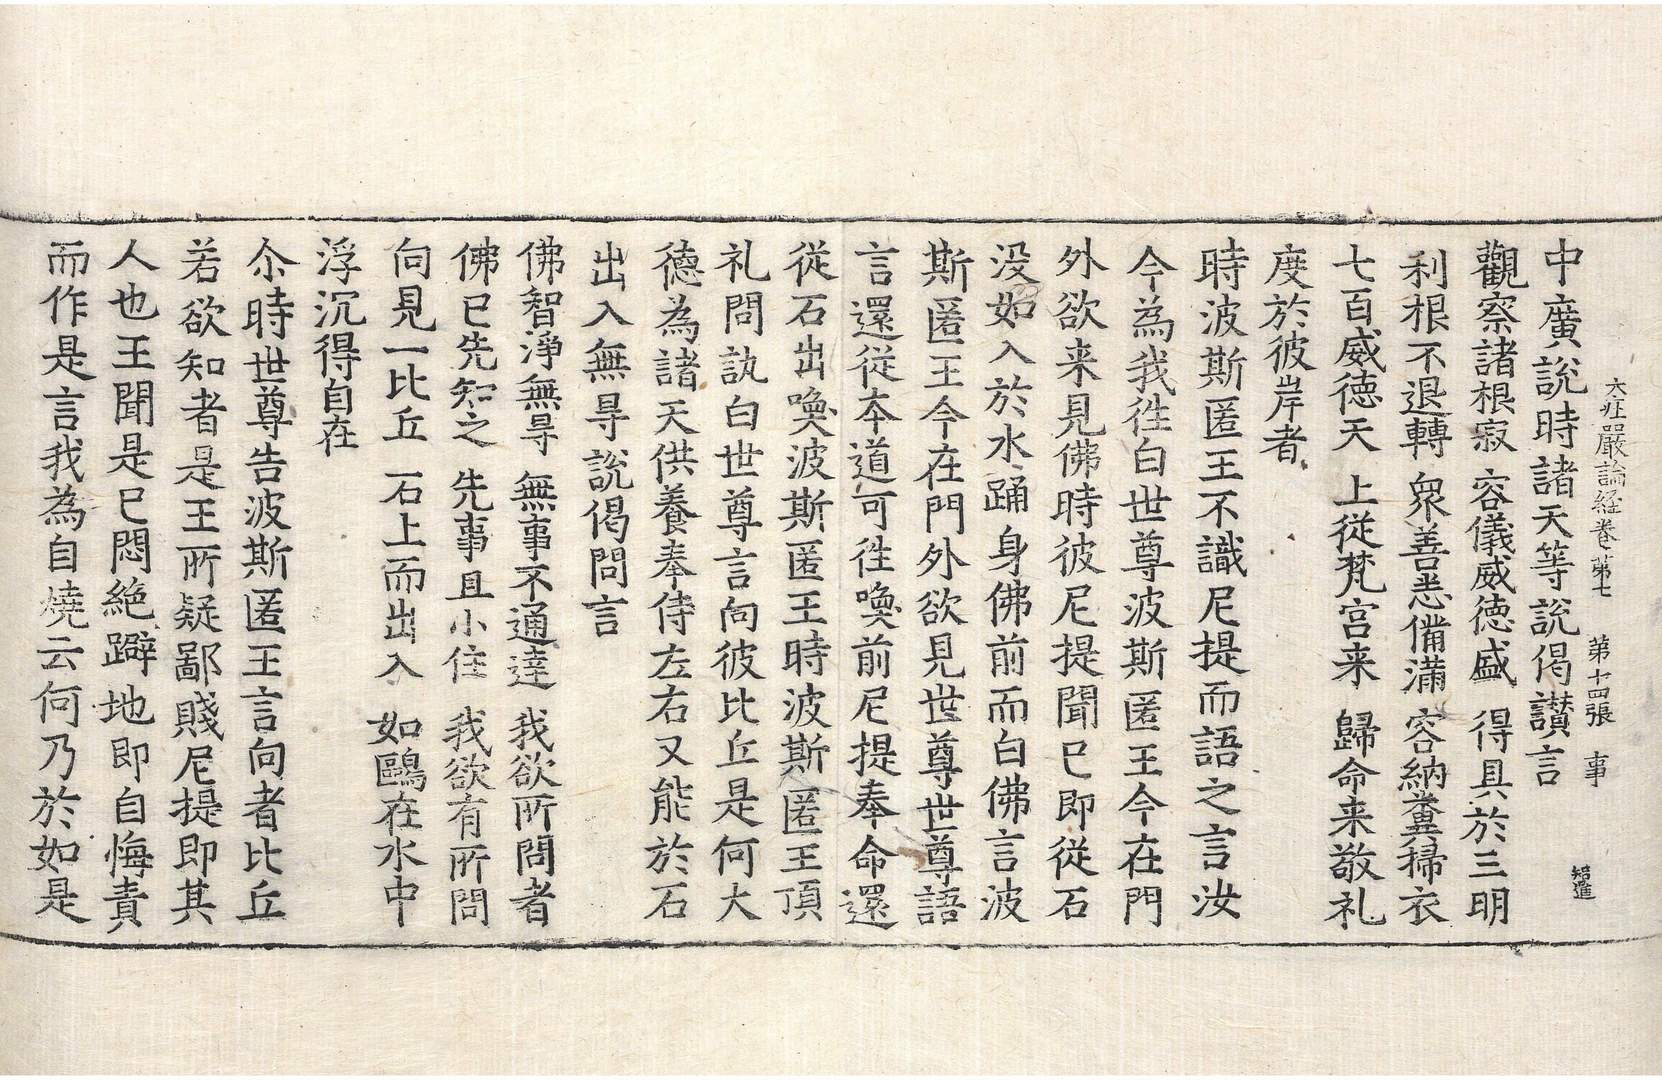 大莊嚴論経卷第七 第十四張 事
知進
中廣說時諸天等說偈讃言
觀察諸根寂 容儀威德盛 得具於三明
利根不退轉 衆善悉備滿 容納糞掃衣
七百威德天 上從梵宫来 歸命来敬礼
度於彼岸者
時波斯匿王不識尼提而語之言汝
今為我徃白世尊波斯匿王今在門
外欲来見佛時彼尼提聞已即從石
没如入於水踊身佛前而白佛言波
斯匿王今在門外欲見世尊世尊語
言還從夲道可徃喚前尼提奉命還
從石出喚波斯匿王時波斯匿王頂
礼問訊白世尊言向彼比丘是何大
德為諸天供養奉侍左右又能於石
出入無㝵說偈問言
佛智淨無㝵 無事不通達 我欲所問者
佛已先知之 先事且小住 我欲有所問
向見一比丘 石上而出入 如鷗在水中
浮沉得自在
尒時世尊告波斯匿王言向者比丘
若欲知者是王所疑鄙賤尼提即其
人也王聞是已悶絶躃地即自悔責
而作是言我為自燒云何乃於如是